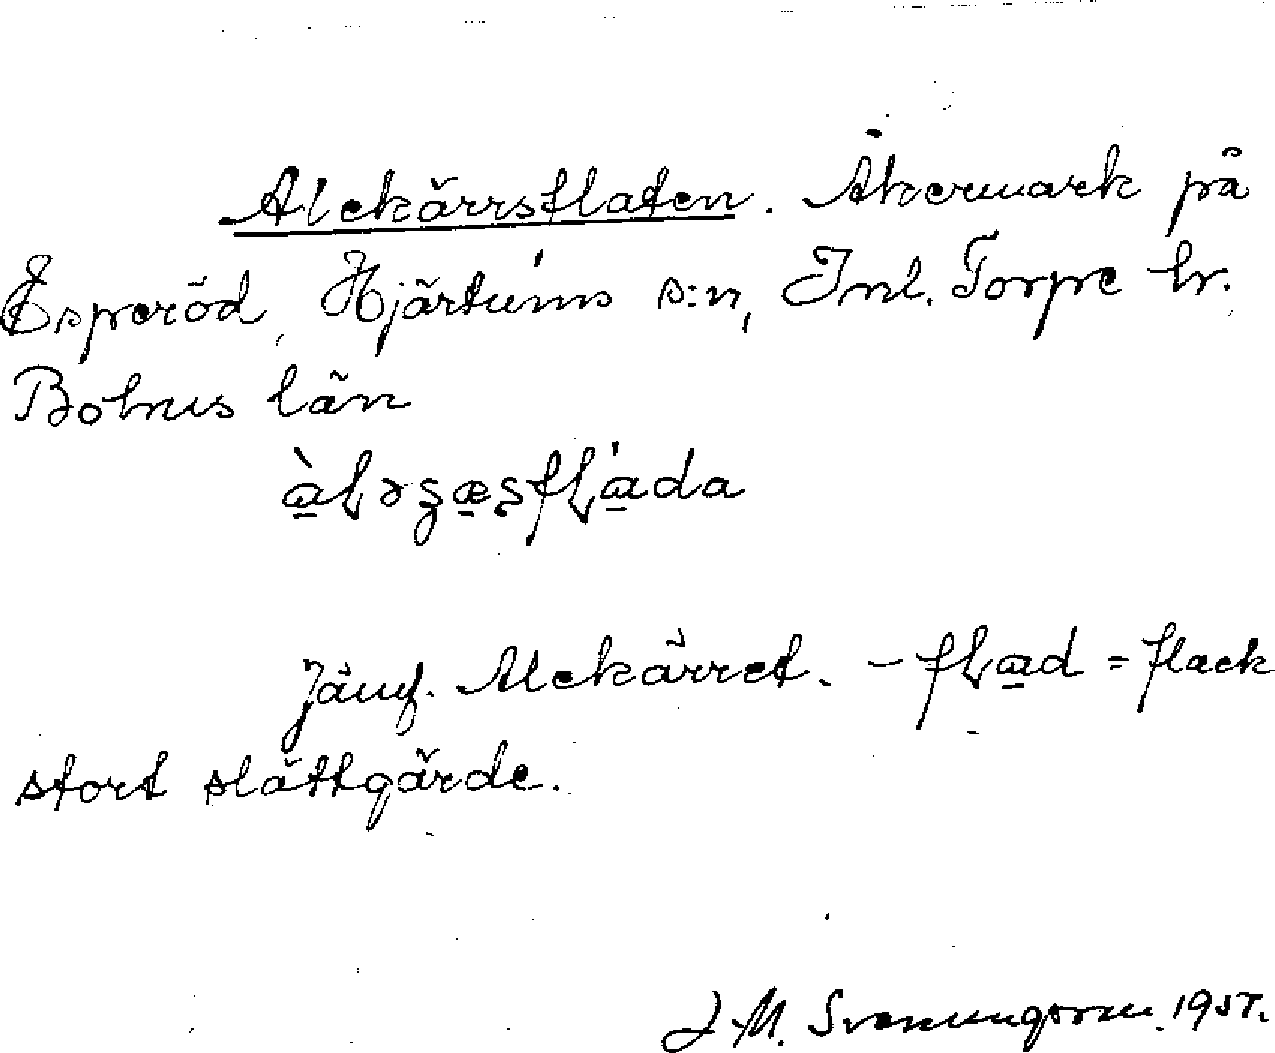 Alekärrsflaten. Åkermark på
Esperöd, Hjärtums s:n, Inl. Torpe hr.
Bohus län
àlǝʂæʂfláda
Jämf. Alekärret. - flad = flack
stort slättgärde.
J. M. Svenungsson. 1957.